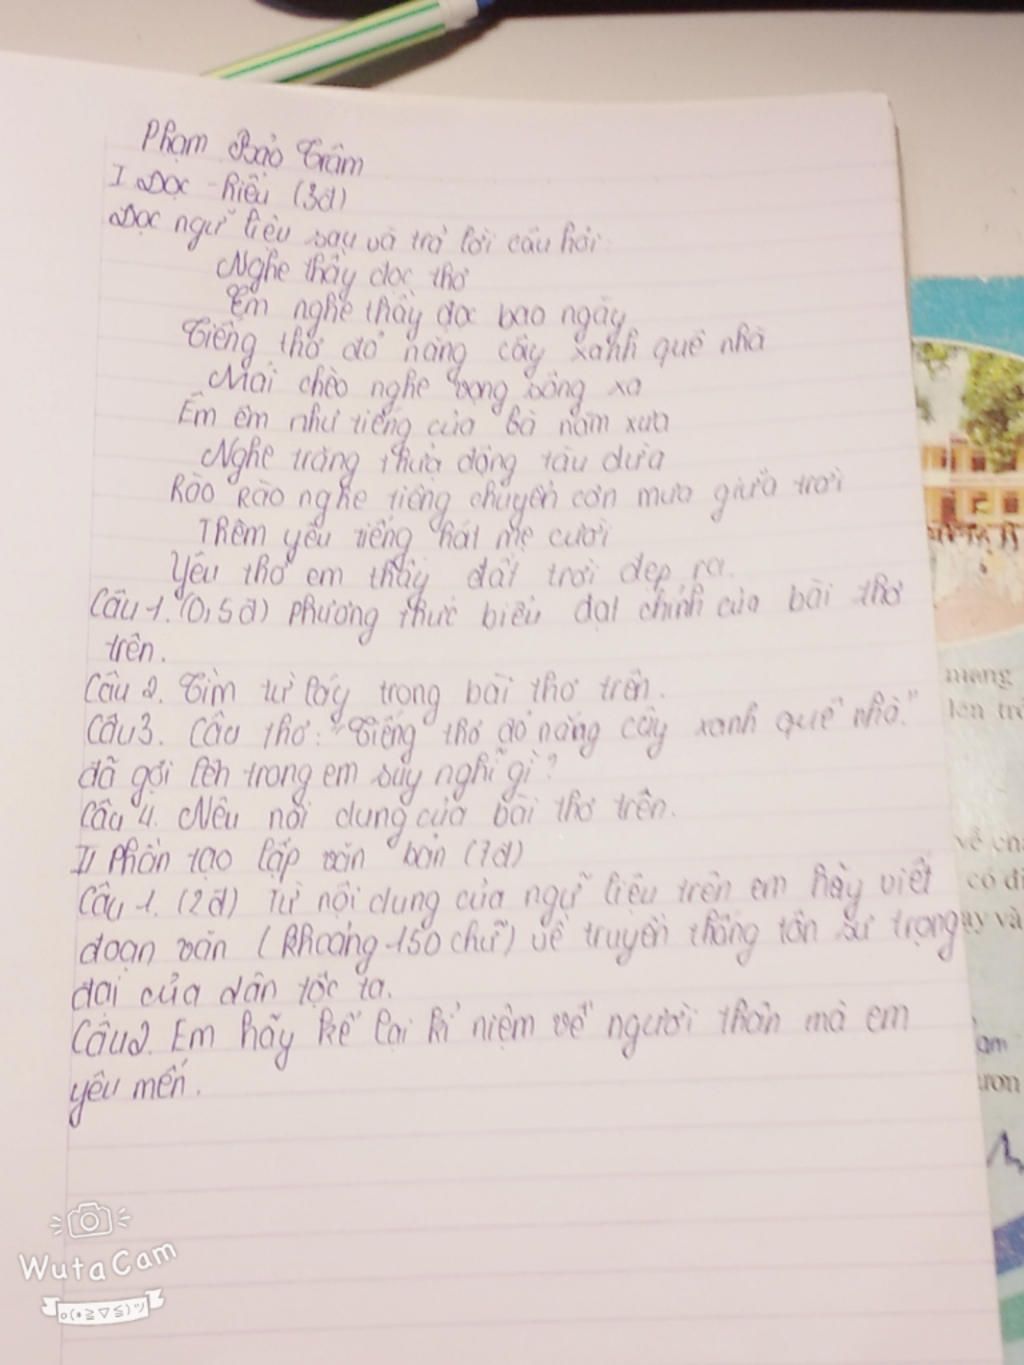 Phạm Bảo Trâm
I Đọc - hiểu (3đ)
Đọc ngữ liệu sau và trả lời câu hỏi:
Nghe thầy đọc thơ
Em nghe thầy đọc bao ngày
Tiếng thơ đỏ nắng cây xanh quê nhà
Mái chèo nghe vọng sông xa
Êm êm như tiếng của bà năm xưa
Nghe trăng thuở động tàu dừa
Rào Rào nghe tiếng chuyển cơn mưa giữa trời
Thêm yêu tiếng hát mẹ cười
Yêu thơ em thấy đất trời đẹp ra.
Câu 1. (0,5đ) phương thức biểu đạt chính của bài thơ
trên.
Câu 2. Tìm từ láy trong bài thơ trên.
Câu 3. Câu thơ: "Tiếng thơ đỏ nắng cây xanh quê nhà."
đã gợi lên trong em suy nghĩ gì?
Câu 4. Nêu nội dung của bài thơ trên.
II Phần tạo lập văn bản (7đ)
Câu 1. (2đ) Từ nội dung của ngữ liệu trên em hãy viết
đoạn văn (khoảng 150 chữ) về truyền thống tôn sư trọng
đại của dân tộc ta.
Câu 2. Em hãy kể lại kỉ niệm về người thân mà em
yêu mến.
mang
lên trê
về
có đi
ay và
am
ươn
WutaCam